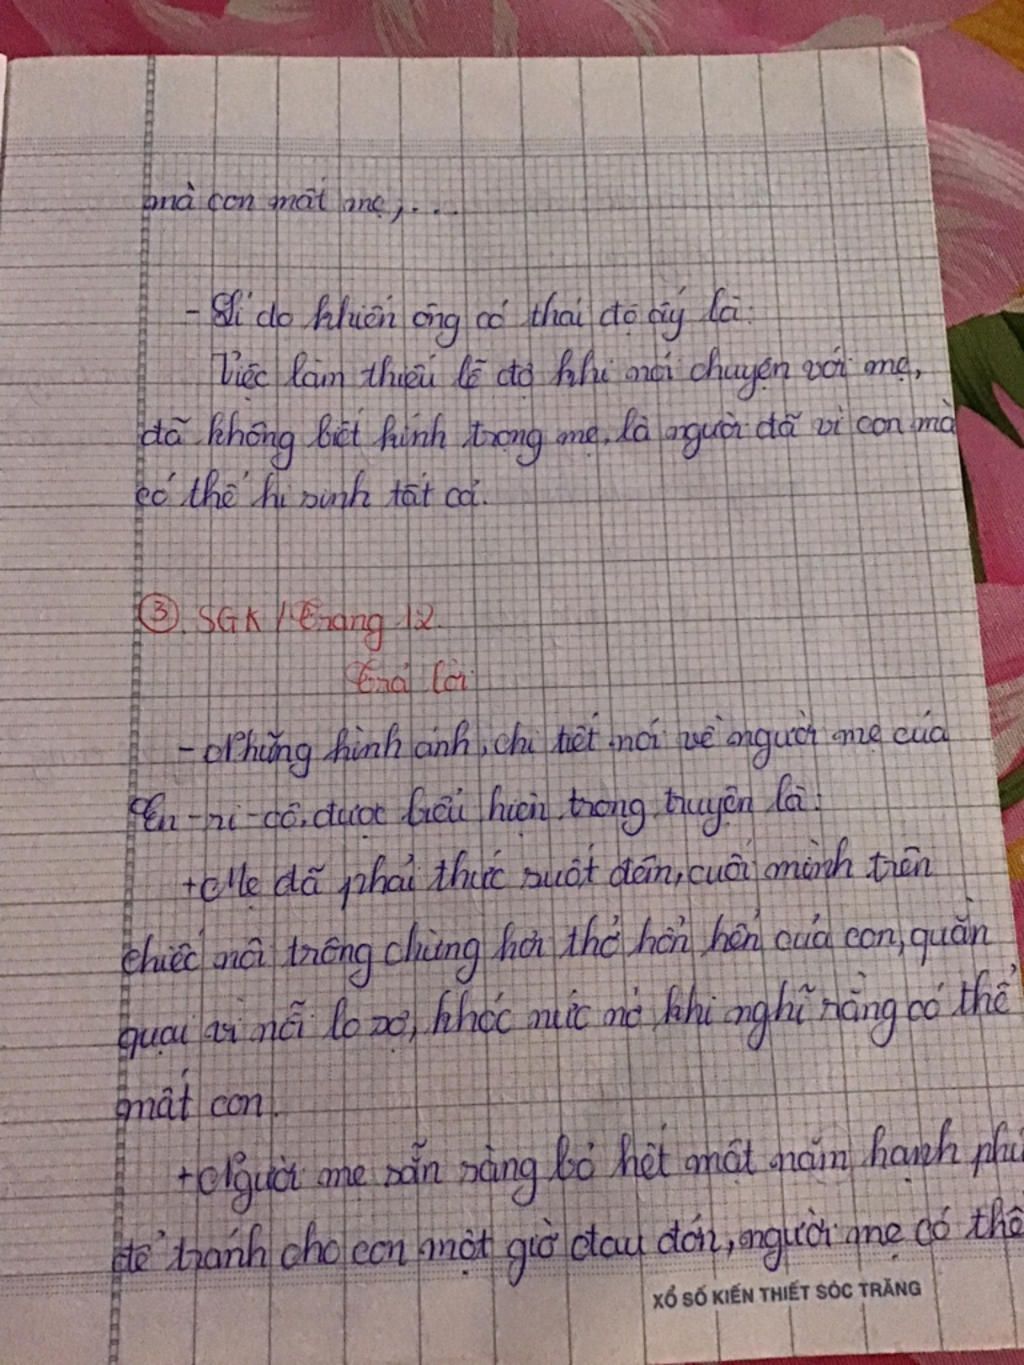 mà con mất mẹ,....
- Lí do khiến ông có thái độ ấy là:
Việc làm thiếu lễ độ khi nói chuyện với mẹ,
đã không biết kính trọng mẹ, là người đã vì con mà
có thể hi sinh tất cả.
③. SGK / Trang 12.
Trả lời
- Những hình ảnh, chi tiết nói về người mẹ của
En-ri-cô, được biểu hiện trong truyện là:
+ Mẹ đã phải thức suốt đêm, cuối mình trên
chiếc nôi trông chừng hơi thở hổn hển của con, quằn
quại vì nỗi lo sợ, khóc nức nở khi nghĩ rằng có thể
mất con.
+ Người mẹ sẵn sàng bỏ hết một năm hạnh phú
để tránh cho con một giờ đau đớn, người mẹ có thể
XỔ SỐ KIẾN THIẾT SÓC TRĂNG